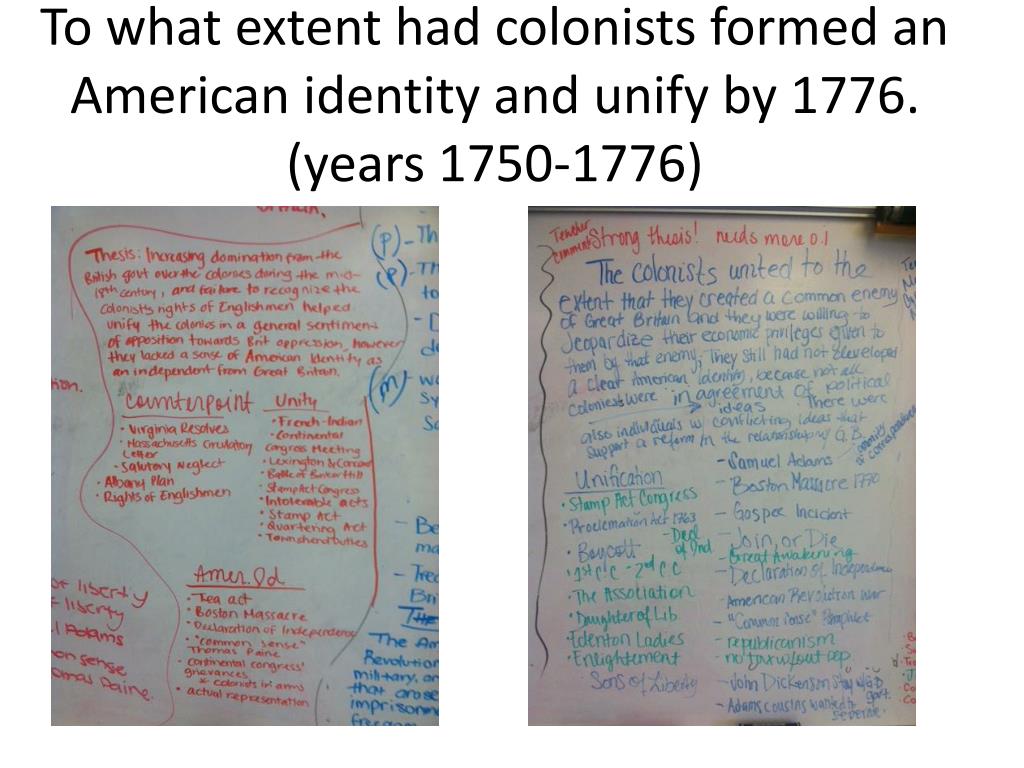 To what extent had colonists formed an
American identity and unify by 1776.
(years 1750-1776)
Thesis: Increasing domination from the
British govt over the colonies during the mid-
18th century, and failure to recognize the
Colonists rights of Englishmen helped
unify the colonies in a general sentiment
of opposition towards Brit oppression, however
they lacked a sense of American Identity as
an independent from Great Britain.
Counterpoint
• Virginia Resolves
• Massachusetts Circulatory
Letter
• Salutory Neglect
• Albany Plan
• Rights of Englishmen
Unity
• French-Indian
• Continental
Congress Meeting
• Lexington & Concord
• Battle of Bunker Hill
• Stamp Act Congress
• Intolerable acts
• Stamp Act
• Quartering Act
• Townshend Duties
Amer. Id
• Tea act
• Boston Massacre
• Declaration of Independence
• "common sense"
Thomas Paine
• continental congress'
grievances
* colonists in arms
• actual representation
(P)-Th
(P)-Th
to
(M)-
Be
ma
Trea
Bri
The
The Am
Revolution
military, an
that arose
imprisonme
freedom
of liberty
liberty
Adams
on sense
omas Paine.
Teacher
Comment
Strong thesis! needs more o.i
The colonists united to the
extent that they created a common enemy
of Great Britain and they were willing to
Jeopardize their economic privileges given to
them by that enemy; They still had not developed
a clear American Identity, because not all
Colonists were in agreement of political
ideas. There were
also individuals w/ conflicting ideas that
support a reform in the relationship w/ G.B.
Unification
• Stamp Act Congress
• Proclemation Act 1763
• Boycott
- Decl
of Ind.
• 1st C.C - 2nd C.C
• The Association
• Daughter of Lib.
• Edenton Ladies
• Enlightement
Sons of Liberty
- Samuel Adams
- Boston Massacre 1770
- Gospee Incident
- Join, or Die
- Great Awakening
- Declaration of Independence
- American Revolution War
- "Common Sense" Pamphlet
- republicanism
- no tax w/out rep
- John Dickenson stay w/ G.B
- Adams cousins wanted